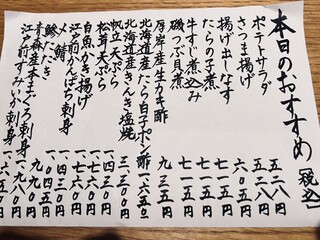 本日のおすすめ（税込）
ポテトサラダ 五二八円
さつま揚げ 五二八円
揚げ出しなす 六〇五円
たらの子煮 七一五円
牛すじ煮込み 七一五円
磯つぶ貝煮 七一五円
厚岸産生カキ酢 九三五円
北海道産たら白子ポン酢 一、六五〇円
北海道産きんき塩焼 三、三〇〇円
帆立天ぷら
松茸天ぷら
白魚かき揚げ
江戸前かんぱち刺身 一、七六〇円
〆鯖 一、四三〇円
鯵たたき
青森産本まぐろ刺身 一、九八〇円
江戸前すみいか刺身